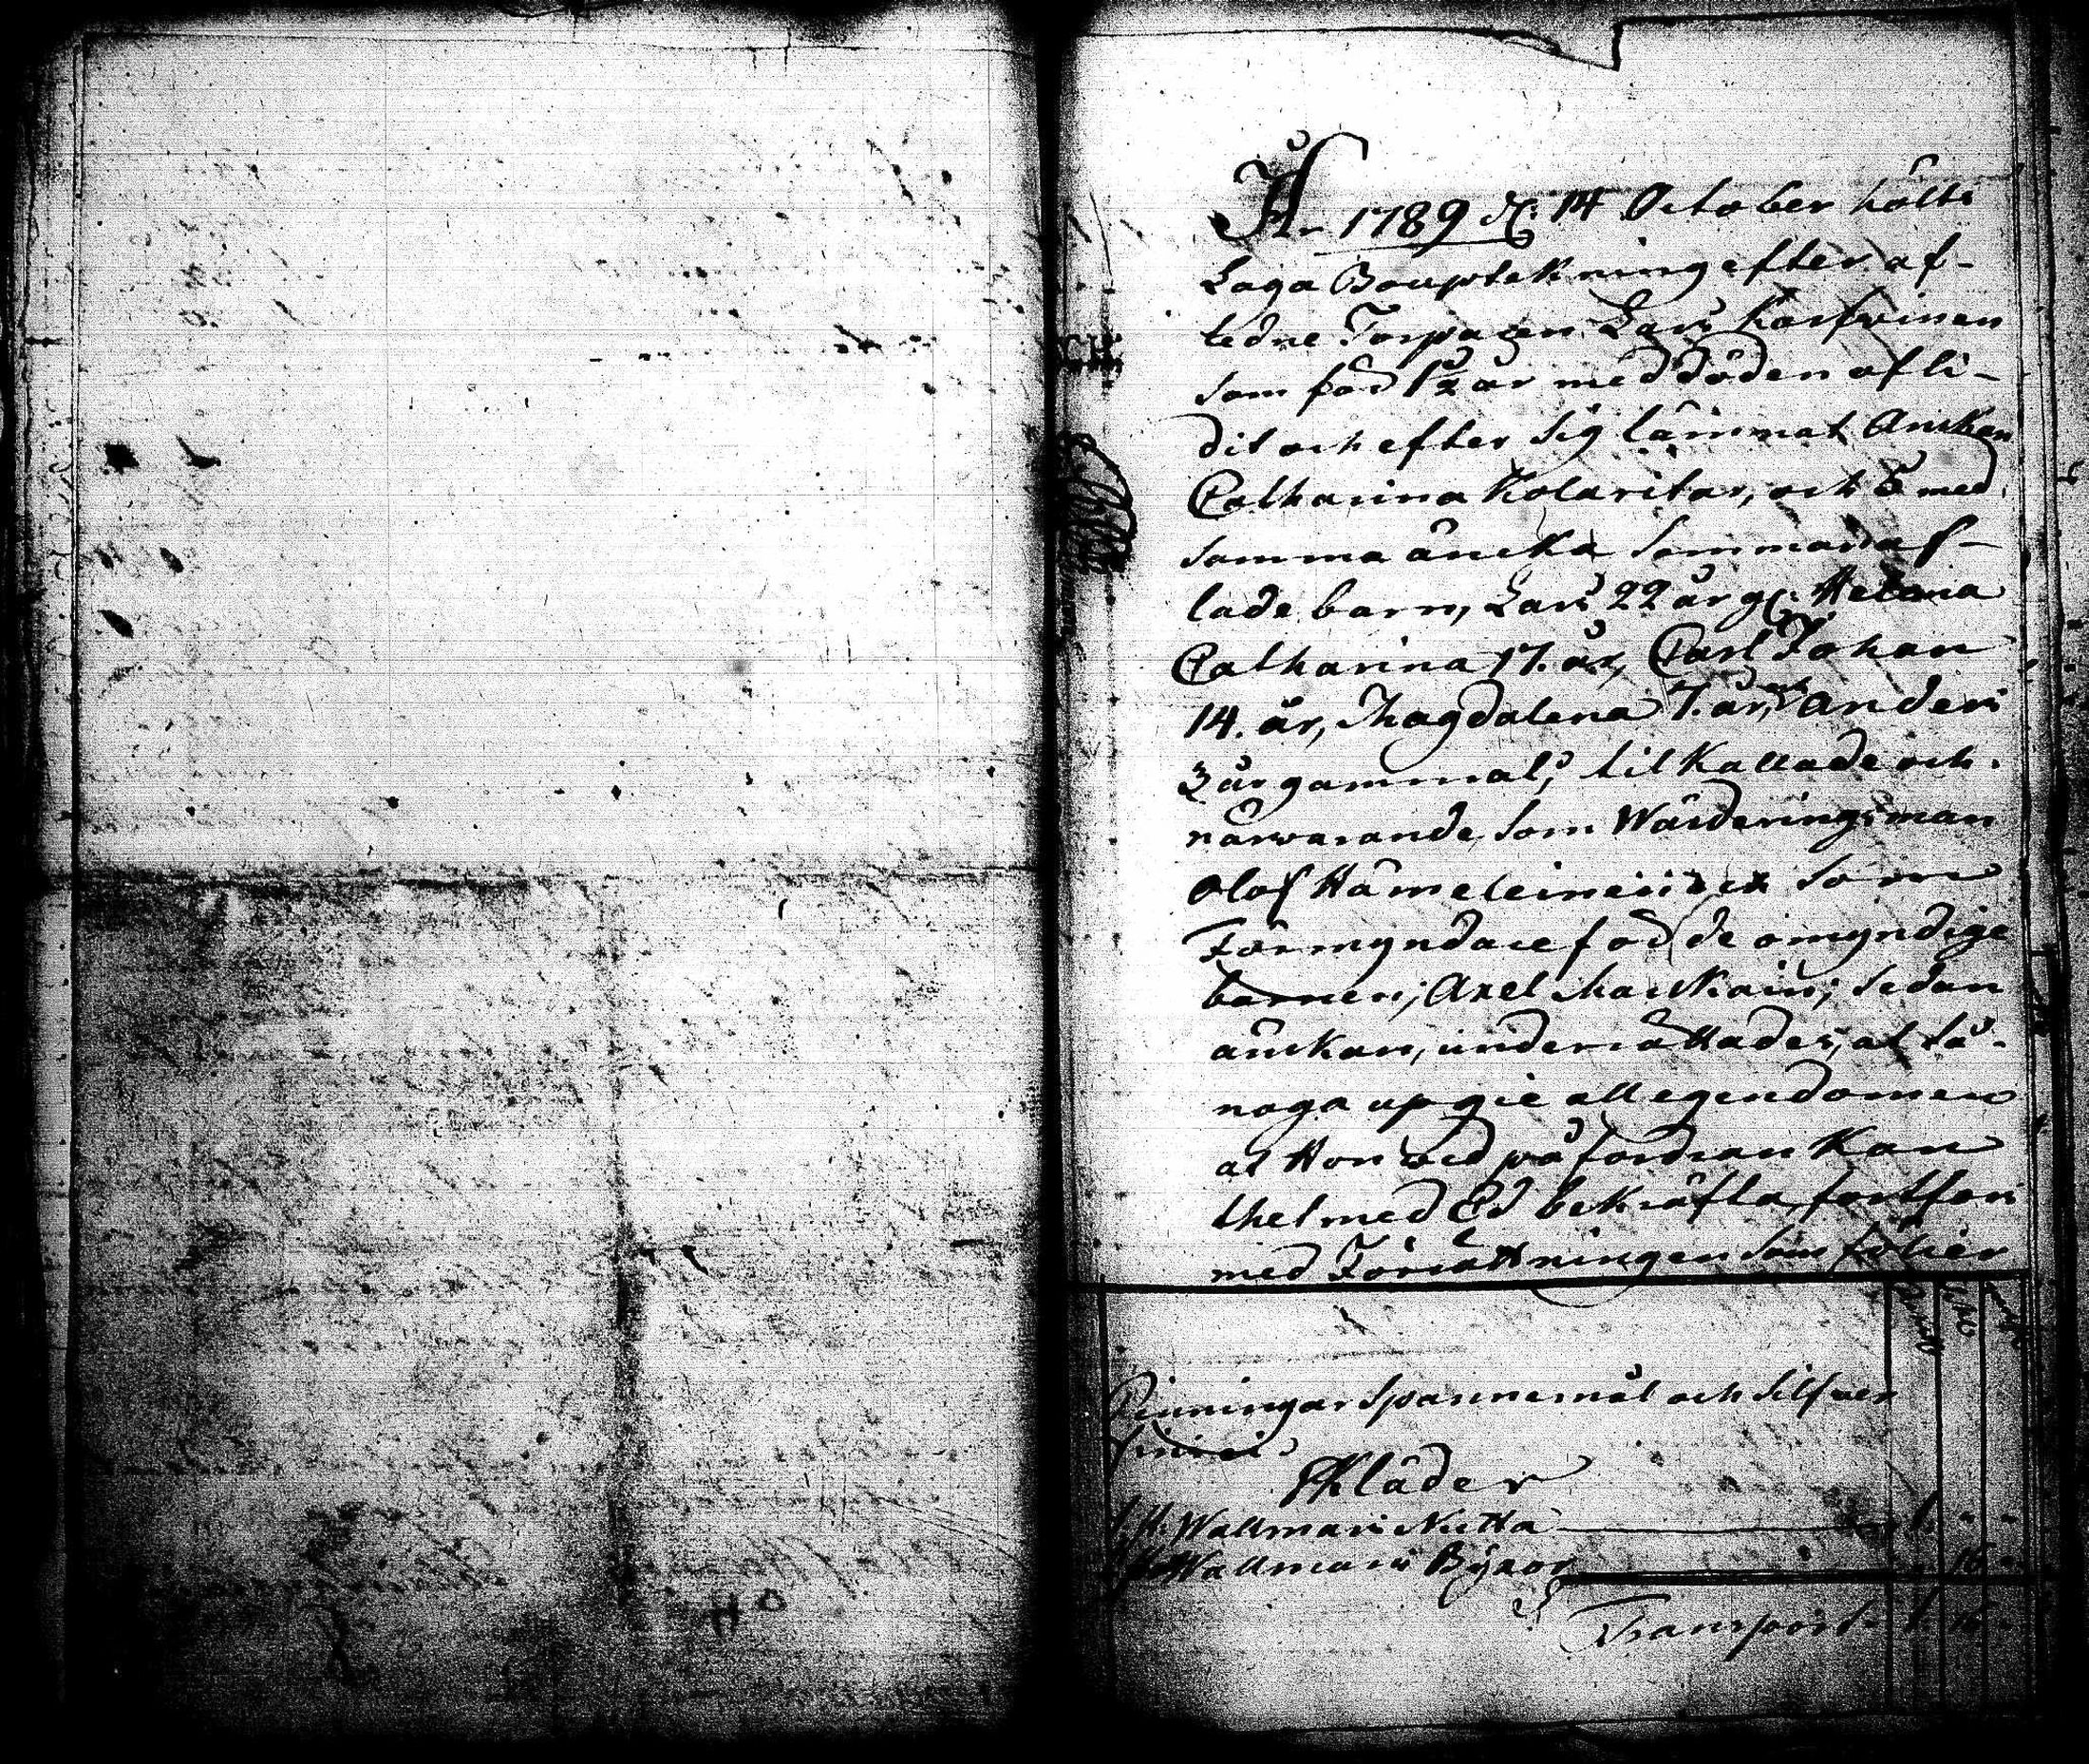 År 1789 d. 14 October hölts
Laga Bouptekning efter af-
ledne Torparen Lars Korfwinen
som föd 1½ år med döden afli-
dit och efter sig lämmat Änckan
Catharina Kolaritar, och 5 med
samma äncka samman af-
lade barn, Lars 22 år gl. Helena
Catharina 17. år, Carl Johan
14. år, Magdalena 7. år, och Anders
3 år gammal; tilkallade och
närwarande som Wärderingsman
Olof Hämeleinen, som
Förmyndare föd de omyndige
barnen; Axel Maukain; sedan
änckan, underrättades, at så
noga upgie all egendomen
at Hon wed påfordran kan
thet med Ed bekräfta, fortfors
med Förrättningen som följer
Pänningar Spannemål och Silfwer
finnes
Kläder
1 st. Wallmars Nutta 1. " "
1 st. Wallmars Byxor " 16 "
Transport 1. 16